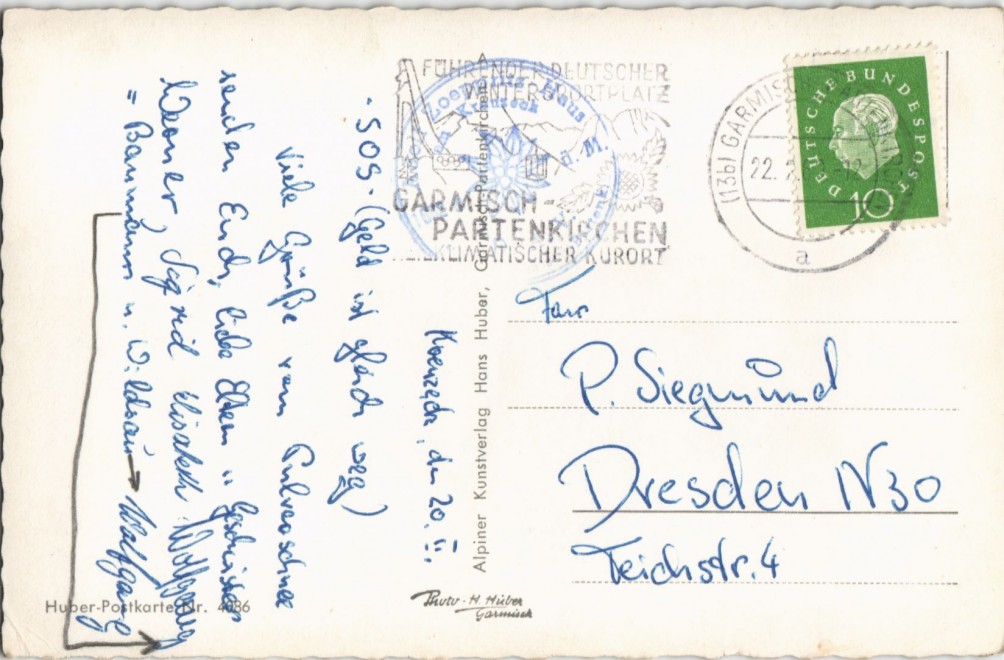 Kreuzeck, den 20. II.
- SOS - (Geld ist gleich weg)
Viele Grüße vom Pulverschnee
senden Euch, liebe Eltern u. Geschwister
Werner, Sigrid Elisabeth Wolfgang
= Bammbamm u. → Wolfgang
Huber-Postkarte Nr. 4086
Alpiner Kunstverlag Hans Huber, Garmisch-Partenkirchen
Photo - H. Huber
Garmisch
FÜHRENDER DEUTSCHER
WINTERSPORTPLATZ
GARMISCH-
PARTENKIRCHEN
HEILKLIMATISCHER KURORT
Haus
Kreuzeck
ü. M.
(13b) GARMISCH
22. 2.
a
DEUTSCHE BUNDESPOST
10
P. Siegmund
Dresden N 30
Teichstr. 4